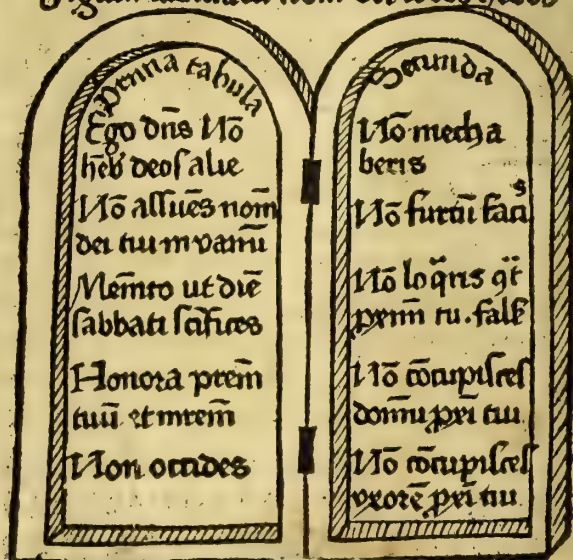 Prima tabula
Ego dn̄s Nō
hēb̄ deos alie
Nō assūes nom̄
dei tui in vanū
Mem̄to ut diē
sabbati scīfices
Honora prēm
tuū et mrēm
Non occides
Secunda
Nō mecha
beris
Nō furtū facis
Nō loq̄ris
tu. fals
Nō cōcupisces
domū tui
Nō cōcupisces
vxorē tui